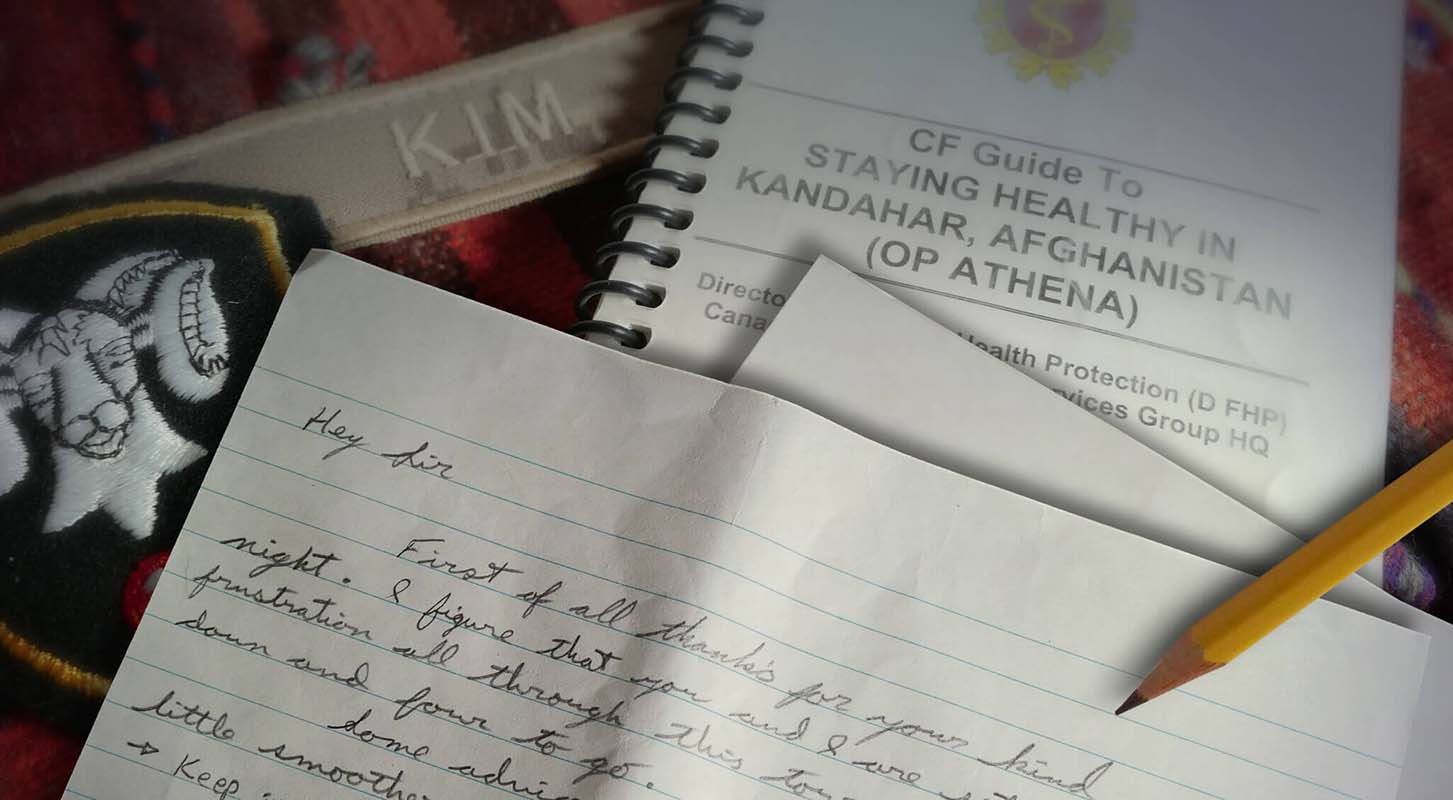 KIM
CF Guide To
STAYING HEALTHY IN
KANDAHAR, AFGHANISTAN
(OP ATHENA)
Directo ealth Protection (D FHP)
Cana vices Group HQ
Hey Sir
First of all thank's for your kind
night. I figure that you and I are
frustration all through this tou
down and four to go.
Some advic
little smoother
→ Keep